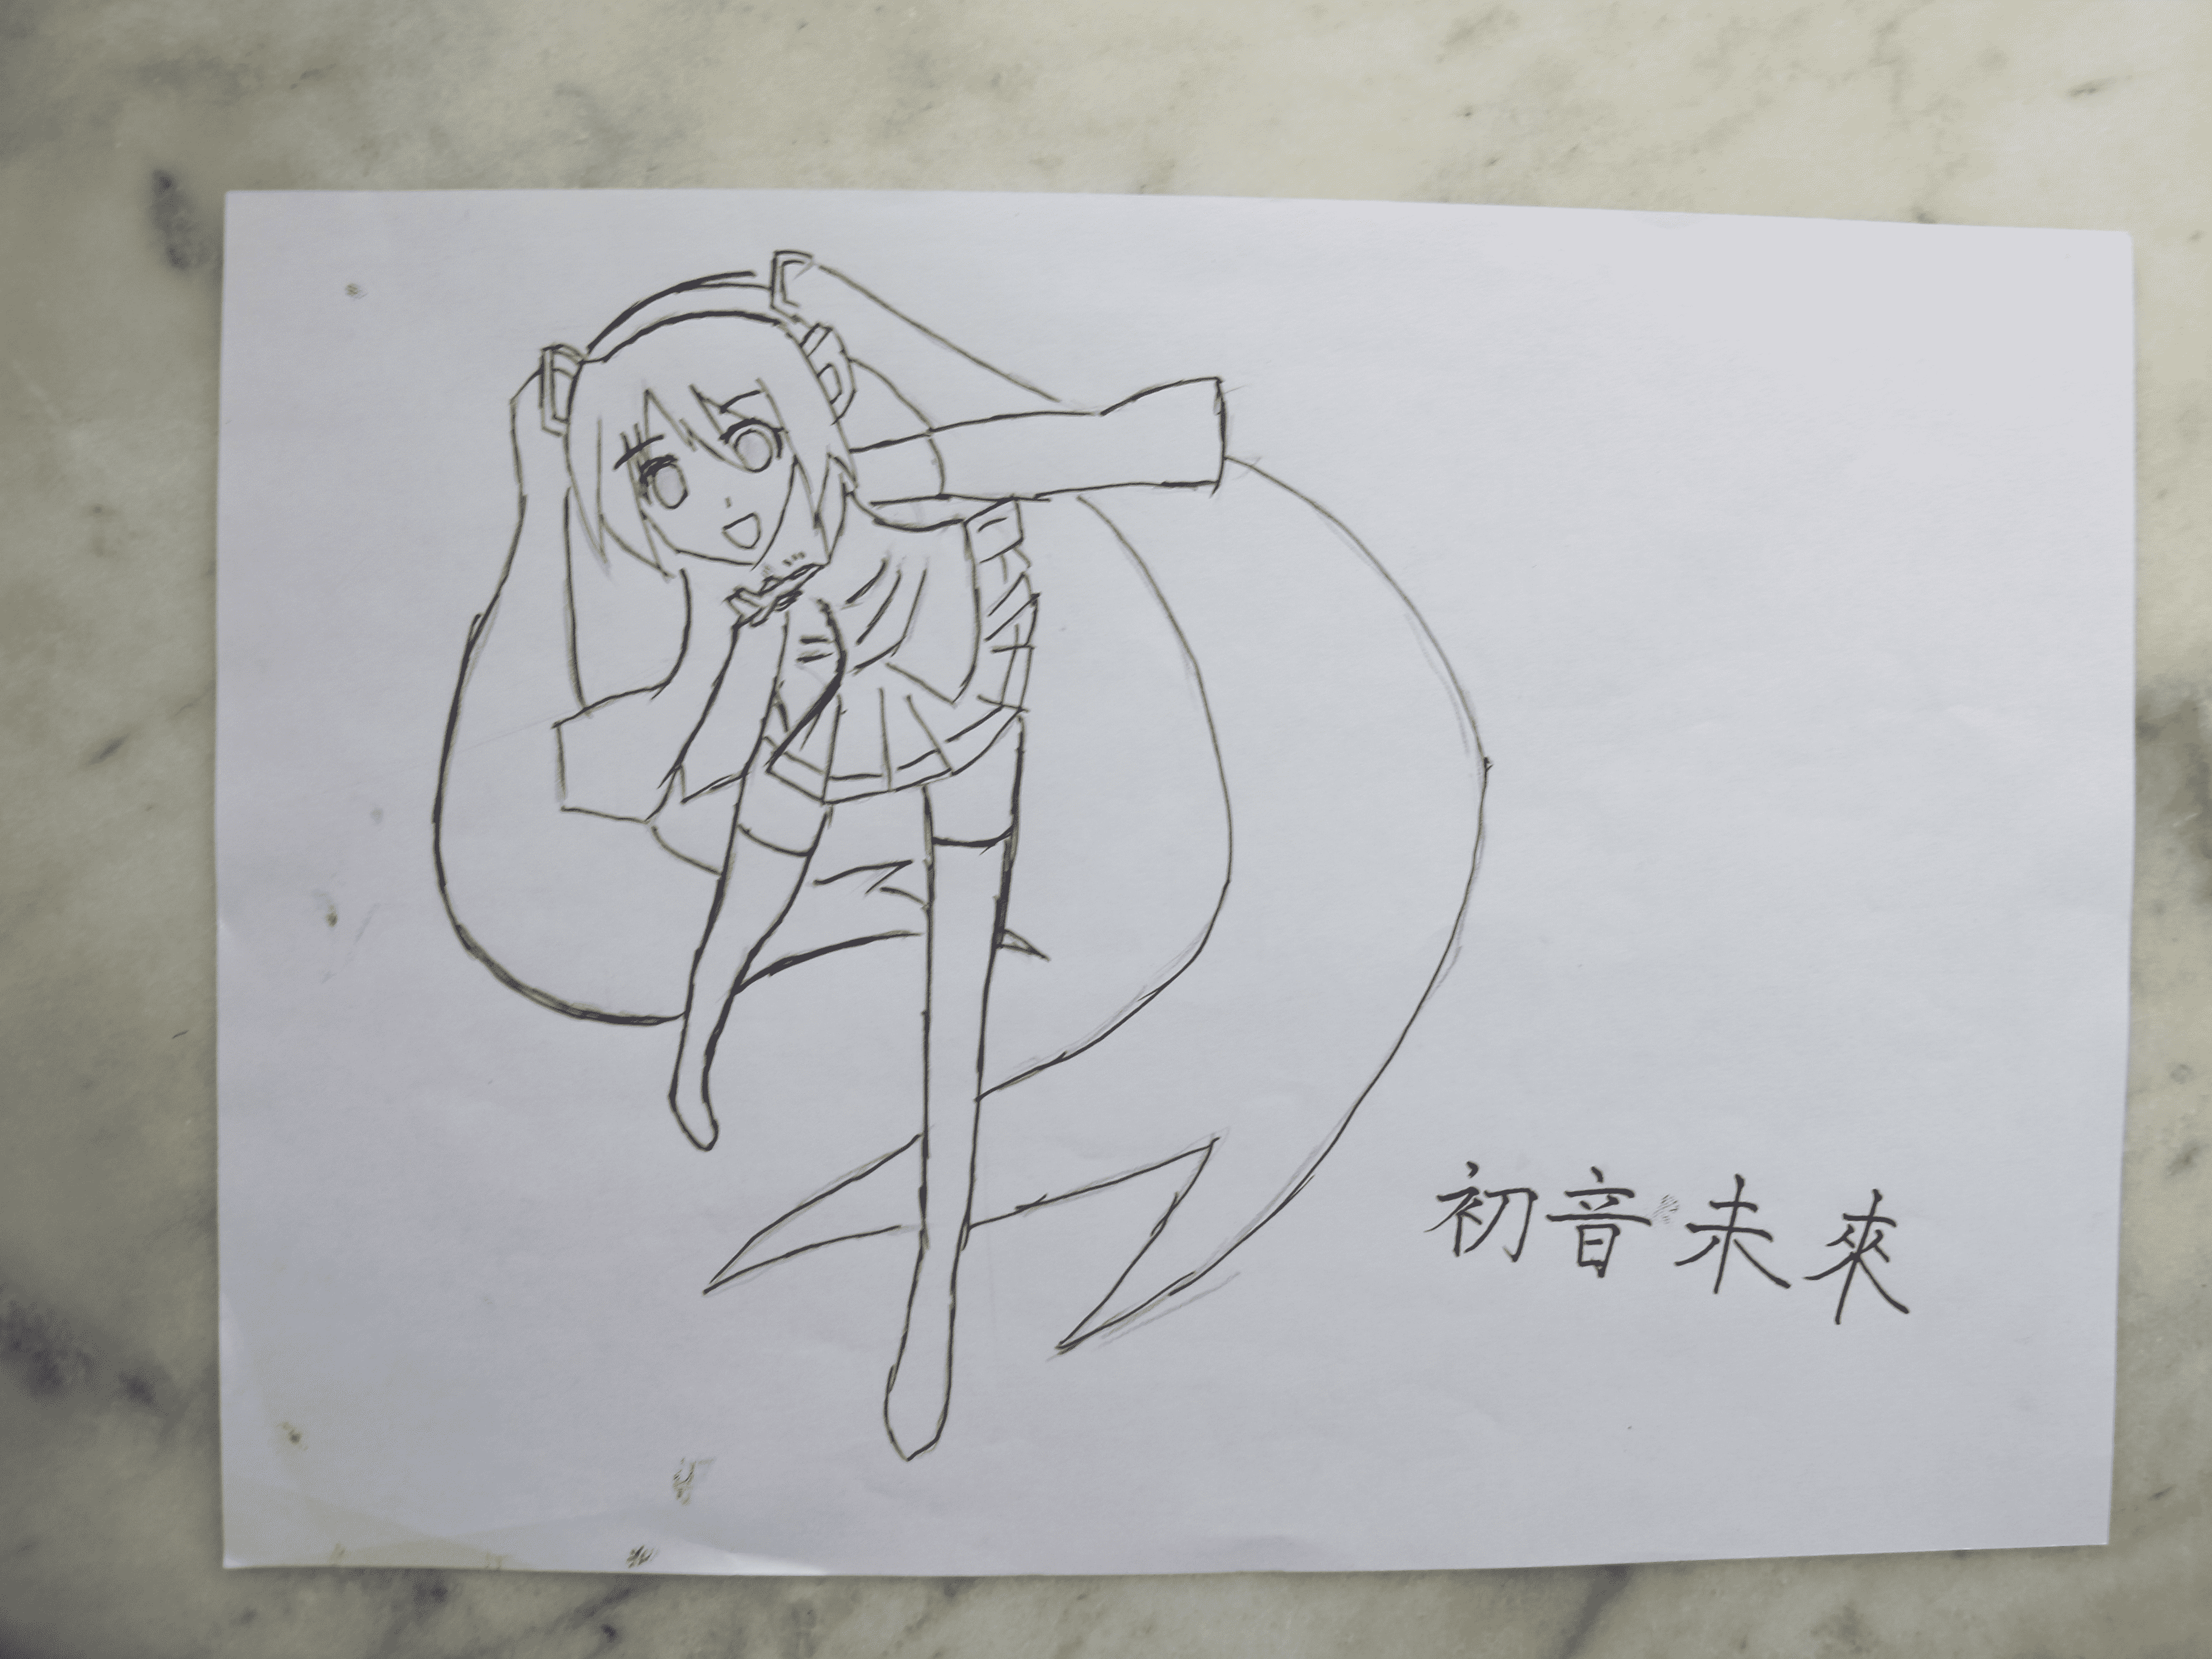 初音未來